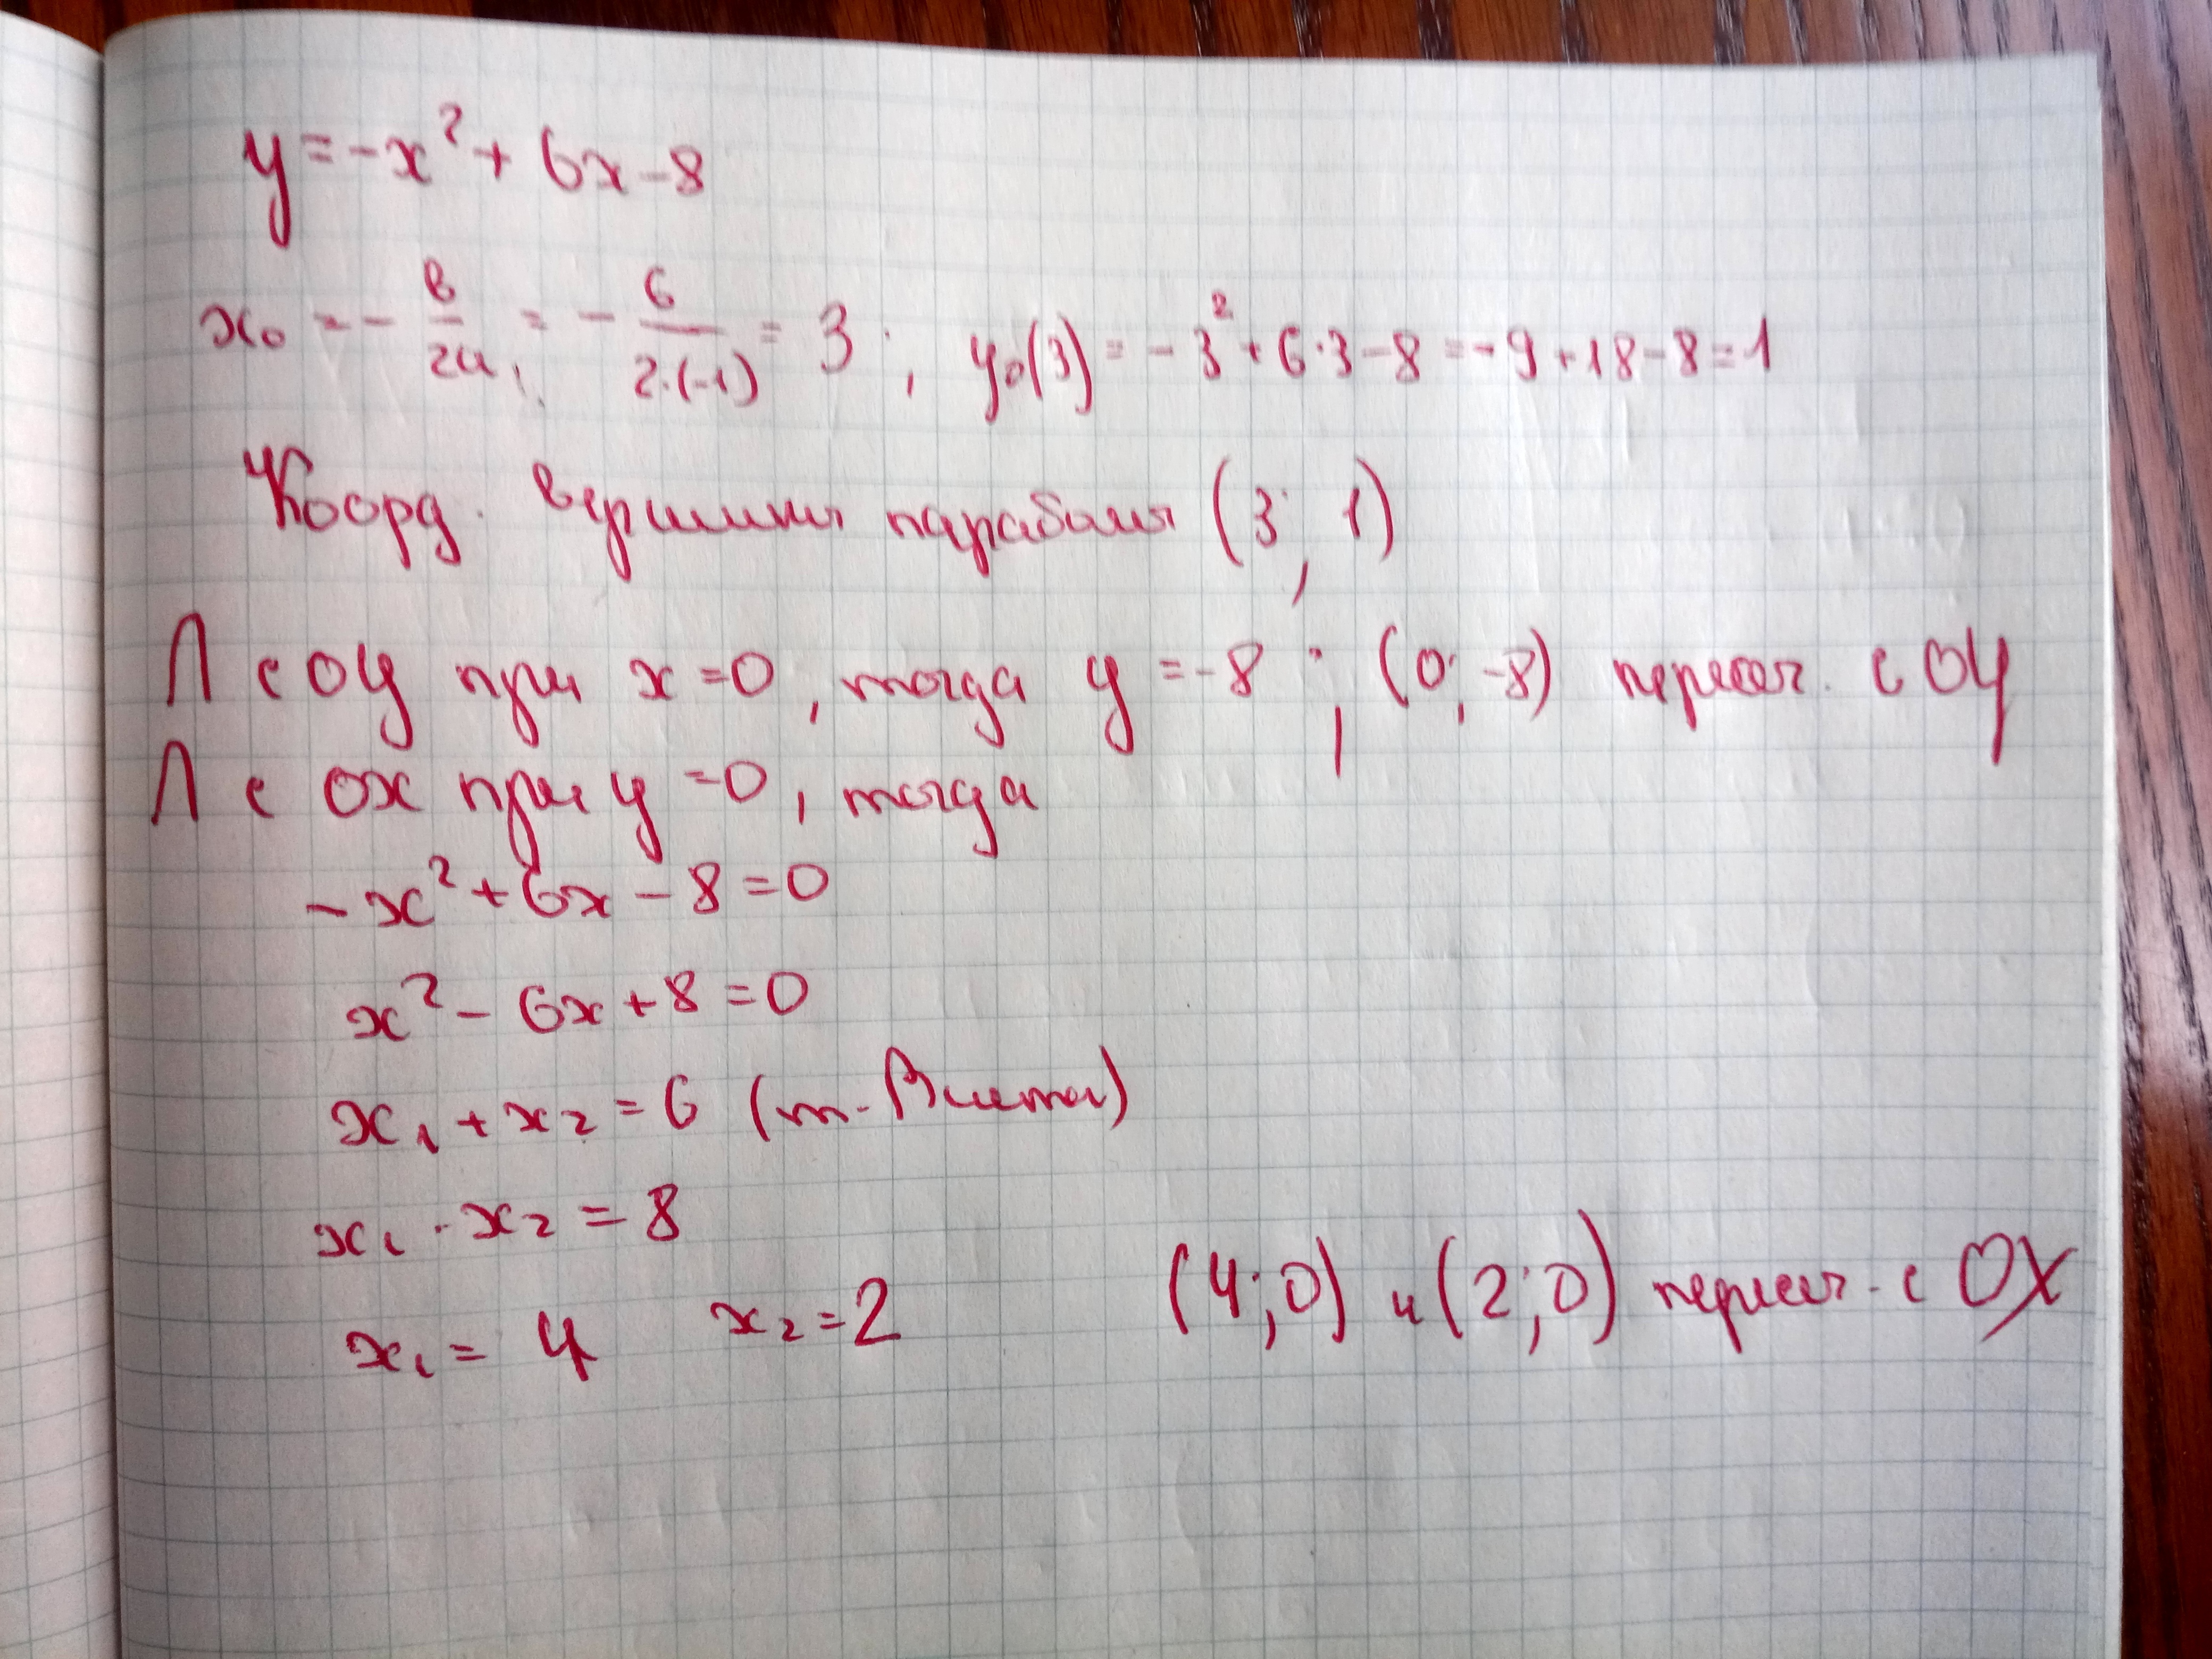 y = -x² + 6x - 8
x₀ = - в/2a = - 6/2·(-1) = 3 ; y₀(3) = - 3² + 6·3 - 8 = -9 + 18 - 8 = 1
Коорд. вершины параболы (3; 1)
⋂ с OY при x = 0, тогда y = -8 ; (0; -8) пересеч. с OY
⋂ с ОХ при y = 0, тогда
-x² + 6x - 8 = 0
x² - 6x + 8 = 0
x₁ + x₂ = 6 (т. Виета)
x₁ · x₂ = 8
x₁ = 4 x₂ = 2 (4; 0) и (2; 0) пересеч. с OX